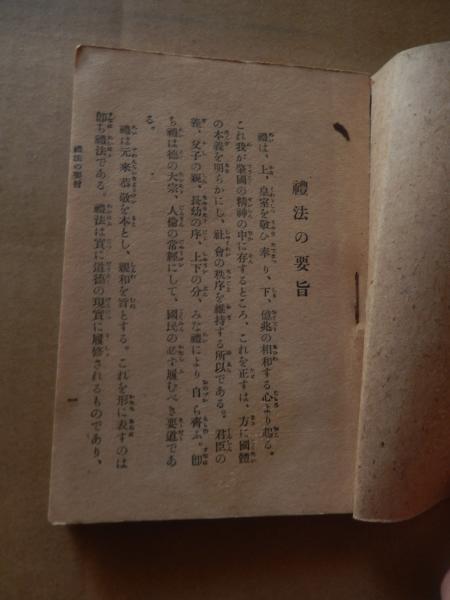 禮法の要旨
禮は、上、皇室を敬ひ奉り、下、億兆の相和する心より起る。
これ我が肇國の精神の中に存するところ、これを正すは、方に國體
の本義を明らかにし、社會の秩序を維持する所以である。君臣の
義、父子の親、長幼の序、上下の分、みな禮により自ら齊ふ。卽
ち禮は德の大宗、人倫の常經にして、國民の必ず履むべき要道であ
る。
禮は元來恭敬を本とし、親和を旨とする。これを形に表すのは
卽ち禮法である。禮法は實に道德の現實に履修されるものであり、
禮法の要旨
一